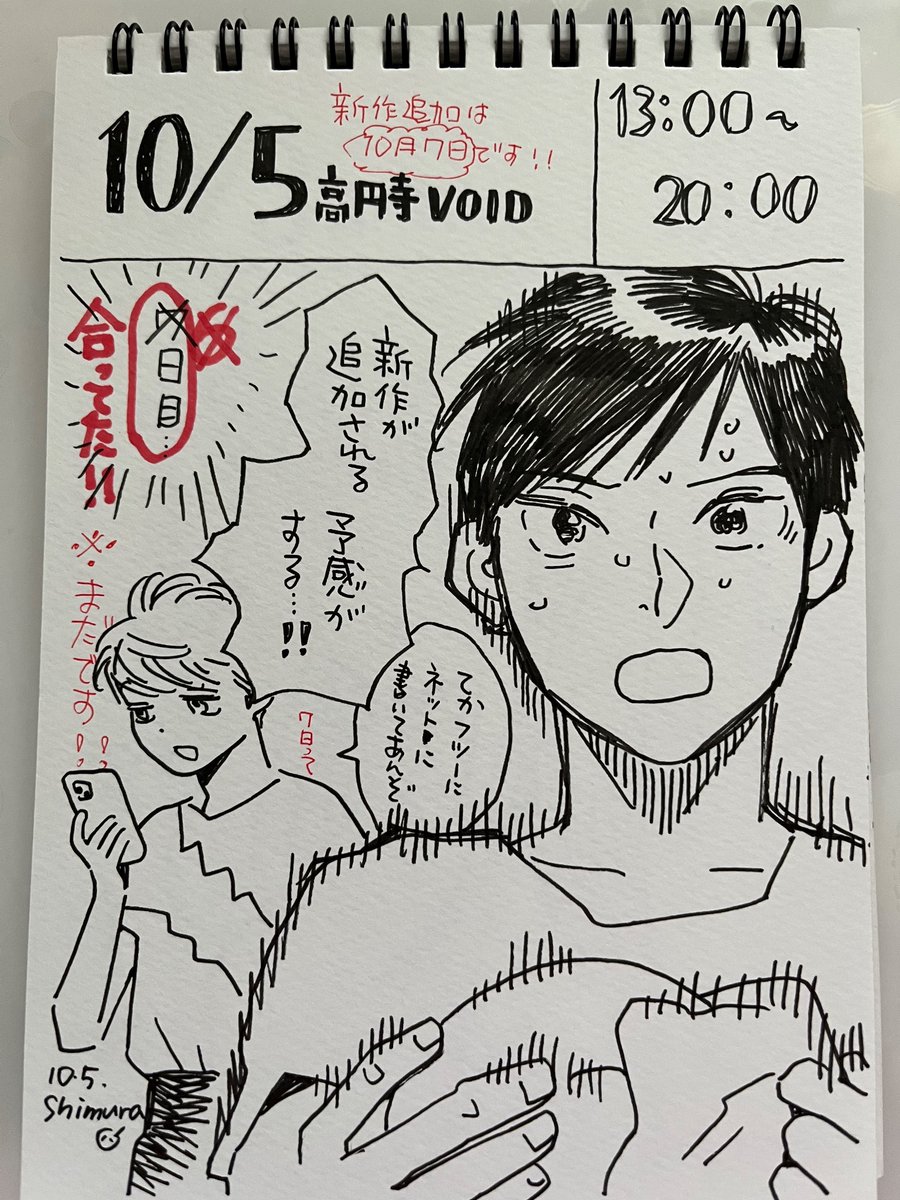 10/5
新作追加は
10月7日です!!
高円寺VOID
13:00~
20:00
新作が
追加される
予感が
する…!!
日目…
合ってた!!
※まだです!!
てかフツーに
ネットに
書いてあんぞ
7日って
10.5.
Shimura